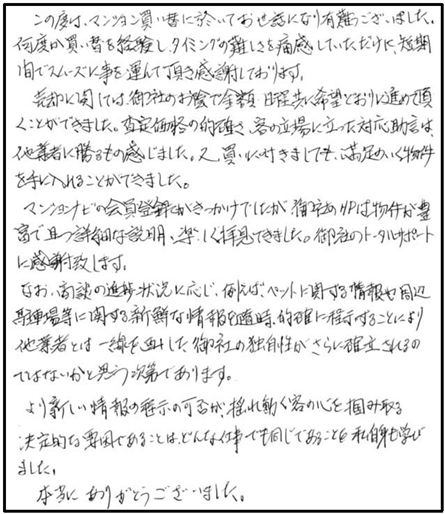 この度は、マンション買い替に於いてお世話になり有難うございました。
何度か買い替を経験し、タイミングの難しさを痛感していただけに、短期
間でスムーズに事を運んで頂き感謝しております。
売却に関しては、御社のお陰で金額・日程共に希望どおりに進めて頂
くことができました。査定価格の的確さ、客の立場に立った対応助言は、
他業者に勝るもの感じました。又、買いに付きましても、満足のいく物件
を手に入れることができました。
マンションナビの会員登録がきっかけでしたが、御社のHPは物件が豊
富で且つ詳細な説明、楽しく拝見できました。御社のトータルサポート
に感謝致します。
なお、商談の進捗状況に応じ、例えば、ペットに関する情報や周辺
駐車場等に関する新鮮な情報を随時、的確に提示することにより
他業者とは一線を画した御社の独自性がさらに確立されるの
ではないかと思う次第であります。
より新しい情報の提示の可否が、揺れ動く客の心を掴み取る
決定的な要因であることは、どんな仕事でも同じであることを私自身も学び
ました。
本当にありがとうございました。